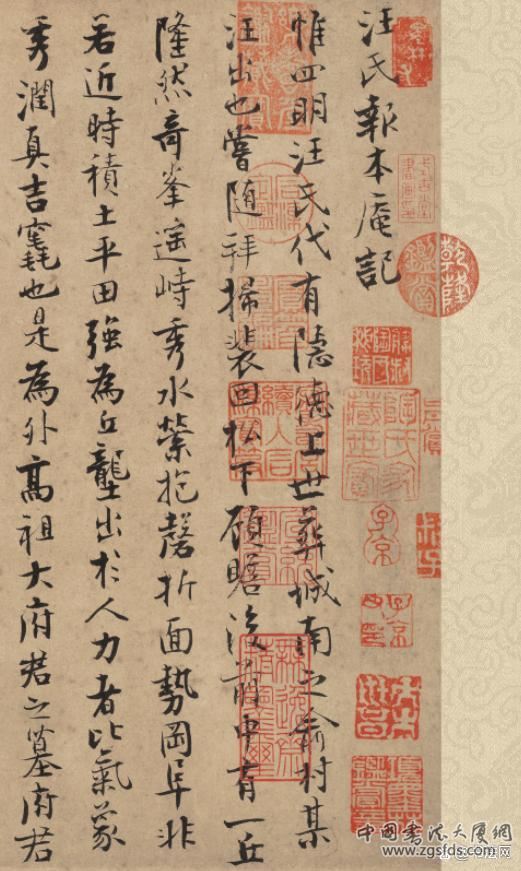 汪氏報本庵記
惟四明汪氏代有隱德上世葬城南之俞村某
汪出也嘗隨拜掃裴回松下顧瞻後前中有一丘
隆然奇峯遥峙秀水縈抱磬折面勢岡阜非
若近時積土平田強為丘壟出於人力者比氣象
秀潤真吉宅也是為外高祖大府君之墓府君
乾隆鑑賞
子京
中国书法大厦网
www.zgsfds.com